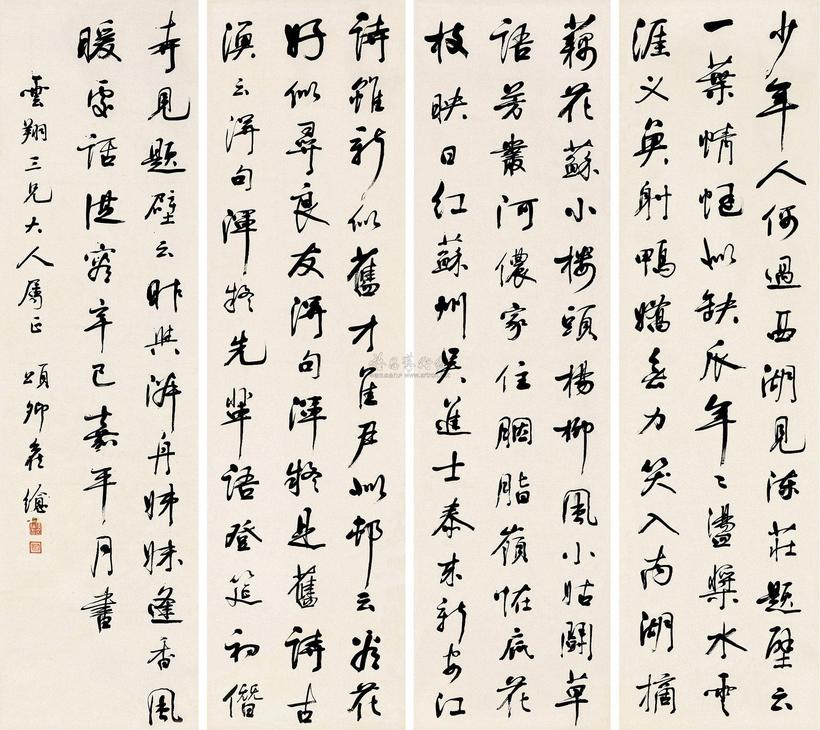 少年人何過西湖見陳莊題壁云
一葉蜻蜓似缺瓜年〻盪槳水雲
涯乂魚射鴨嬌無力笑入南湖摘
藕花蘇小樓頭楊柳風小姑鬭草
語芳叢阿儂家住胭脂嶺怪底花
枝映日紅蘇州吳進士泰來新安江
詩雖新似舊才隹尹似邨云落花
好似尋良友得句渾疑是舊詩古
漁云得句渾疑先輩語登筵初僭
寺見題壁云昨與游舟姊妹逢香風
暖處話從容辛巳嘉平月書
雲翔三兄大人屬正 頌卿